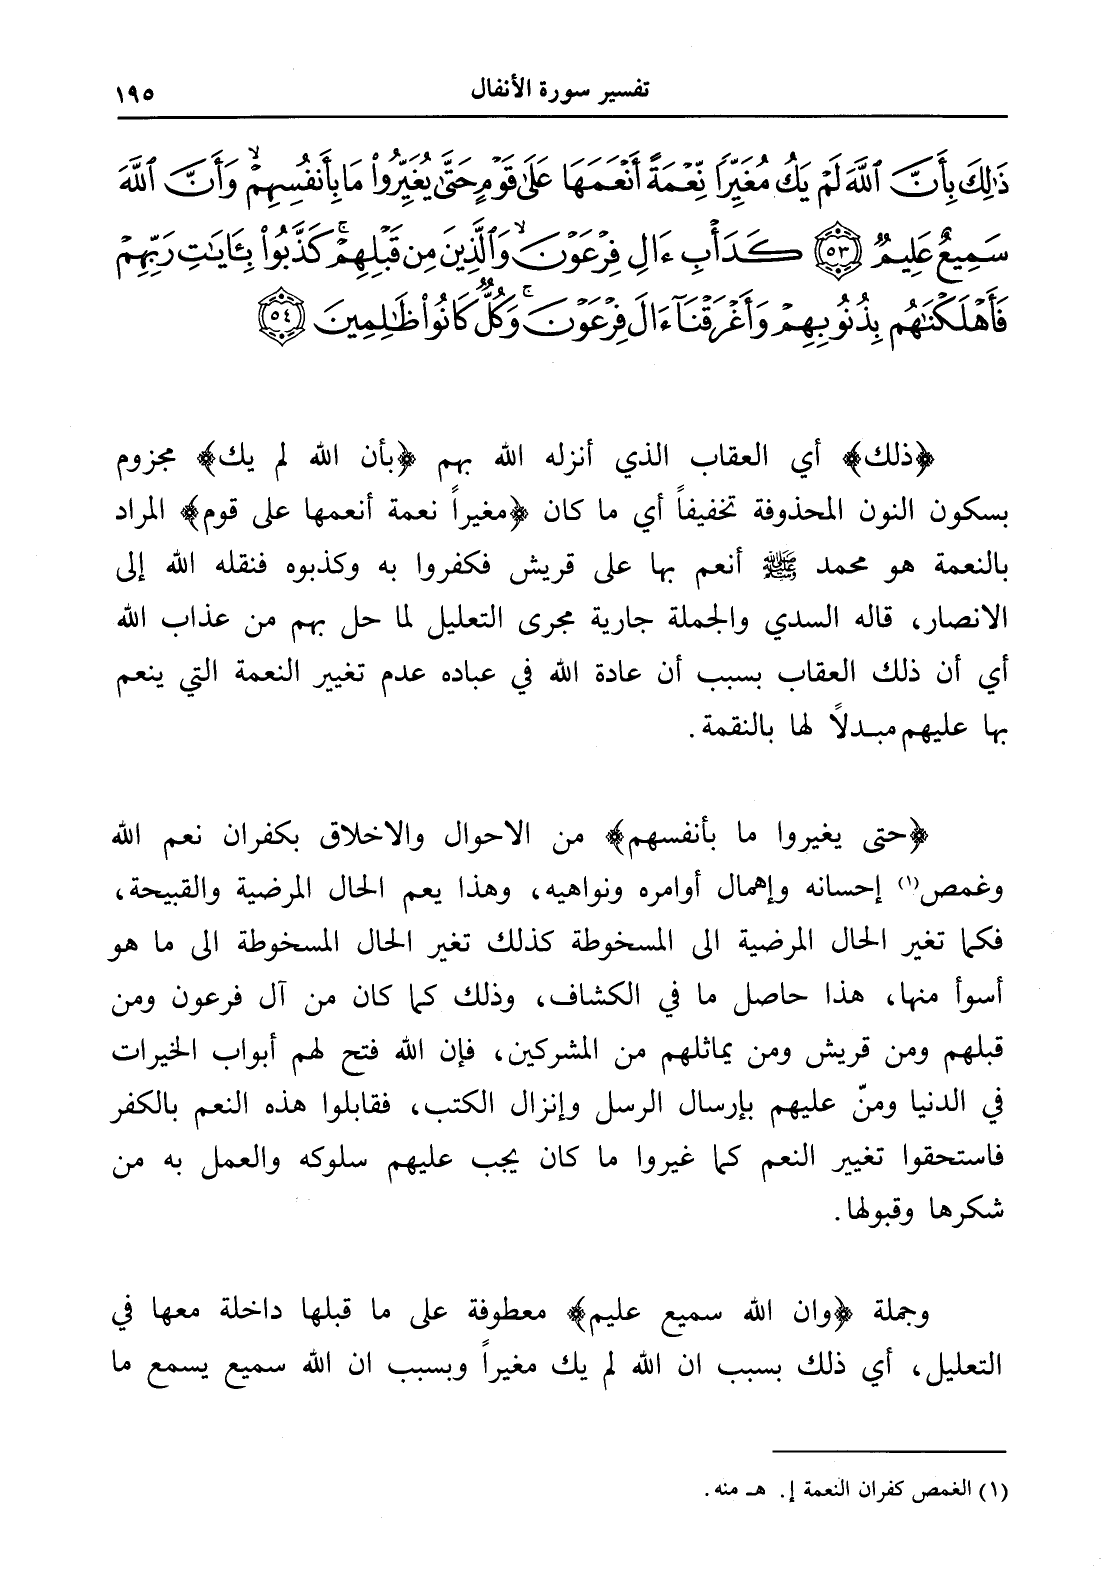 تفسير سورة الأنفال ١٩٥
ذَٰلِكَ بِأَنَّ ٱللَّهَ لَمْ يَكُ مُغَيِّرًا نِّعْمَةً أَنْعَمَهَا عَلَىٰ قَوْمٍ حَتَّىٰ يُغَيِّرُوا۟ مَا بِأَنفُسِهِمْ ۙ وَأَنَّ ٱللَّهَ
سَمِيعٌ عَلِيمٌ ٥٣ كَدَأْبِ ءَالِ فِرْعَوْنَ ۙ وَٱلَّذِينَ مِن قَبْلِهِمْ ۚ كَذَّبُوا۟ بِـَٔايَٰتِ رَبِّهِمْ
فَأَهْلَكْنَٰهُم بِذُنُوبِهِمْ وَأَغْرَقْنَآ ءَالَ فِرْعَوْنَ ۚ وَكُلٌّ كَانُوا۟ ظَٰلِمِينَ ٥٤
﴿ذلك﴾ أي العقاب الذي أنزله الله بهم ﴿بأن الله لم يك﴾ مجزوم
بسكون النون المحذوفة تخفيفاً أي ما كان ﴿مغيراً نعمة أنعمها على قوم﴾ المراد
بالنعمة هو محمد ﷺ أنعم بها على قريش فكفروا به وكذبوه فنقله الله إلى
الانصار، قاله السدي والجملة جارية مجرى التعليل لما حل بهم من عذاب الله
أي أن ذلك العقاب بسبب أن عادة الله في عباده عدم تغيير النعمة التي ينعم
بها عليهم مبدلاً لها بالنقمة.
﴿حتى يغيروا ما بأنفسهم﴾ من الاحوال والاخلاق بكفران نعم الله
وغمص(١) إحسانه وإهمال أوامره ونواهيه، وهذا يعم الحال المرضية والقبيحة،
فكما تغير الحال المرضية الى المسخوطة كذلك تغير الحال المسخوطة الى ما هو
أسوأ منها، هذا حاصل ما في الكشاف، وذلك كما كان من آل فرعون ومن
قبلهم ومن قريش ومن يماثلهم من المشركين، فإن الله فتح لهم أبواب الخيرات
في الدنيا ومنّ عليهم بإرسال الرسل وإنزال الكتب، فقابلوا هذه النعم بالكفر
فاستحقوا تغيير النعم كما غيروا ما كان يجب عليهم سلوكه والعمل به من
شكرها وقبولها.
وجملة ﴿وان الله سميع عليم﴾ معطوفة على ما قبلها داخلة معها في
التعليل، أي ذلك بسبب ان الله لم يك مغيراً وبسبب ان الله سميع يسمع ما
(١) الغمص كفران النعمة إ. هـ منه.